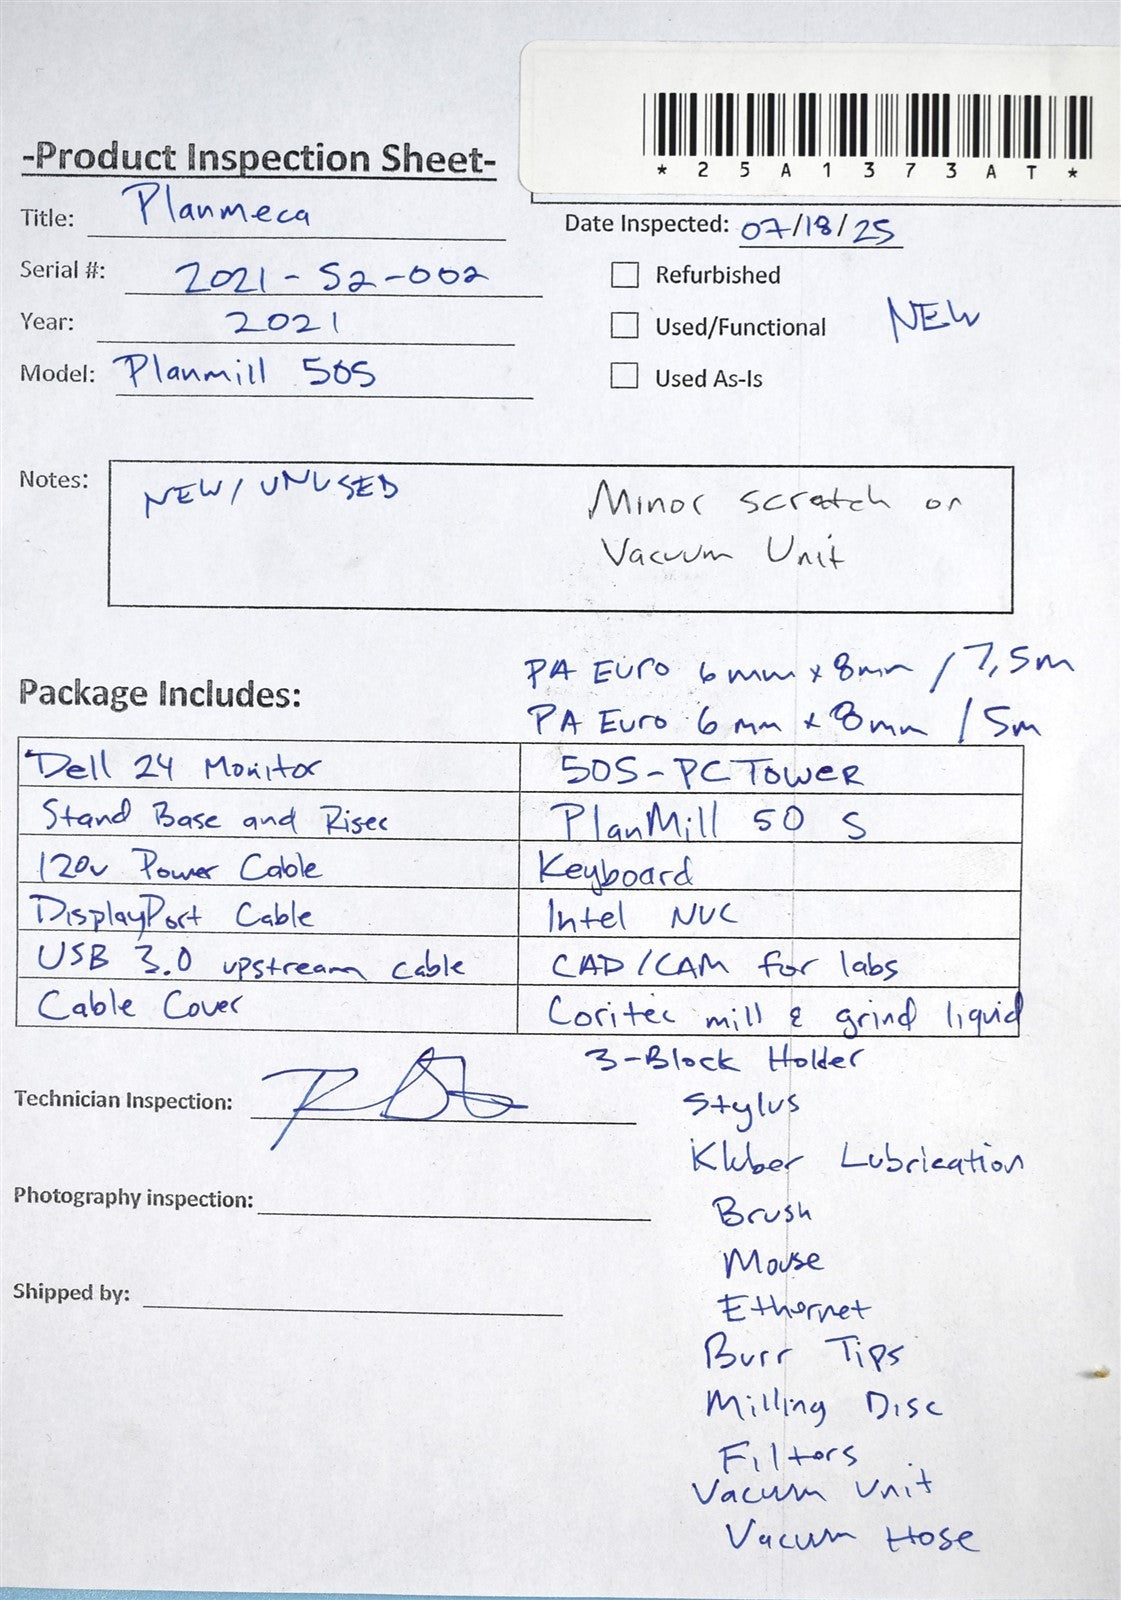 * 2 5 A 1 3 7 3 A T *
-Product Inspection Sheet-
Title: Planmeca
Date Inspected: 07/18/25
Serial #: 2021-S2-002
Refurbished
Year: 2021
Used/Functional NEW
Model: Planmill 50S
Used As-Is
Notes: NEW/UNUSED
Minor scratch on
Vacuum Unit
PA Euro 6mm x 8mm / 7,5m
Package Includes:
PA Euro 6mm x 8mm / 5m
Dell 24 Monitor 50S-PC TOWER
Stand Base and Riser PlanMill 50 S
120v Power Cable Keyboard
DisplayPort Cable Intel NUC
USB 3.0 upstream cable CAD/CAM for labs
Cable Cover Coritec mill & grind liquid
3-Block Holder
Technician Inspection:
Stylus
Kluber Lubrication
Photography inspection:
Brush
Mouse
Shipped by:
Ethernet
Burr Tips
Milling Disc
Filters
Vacuum Unit
Vacuum Hose